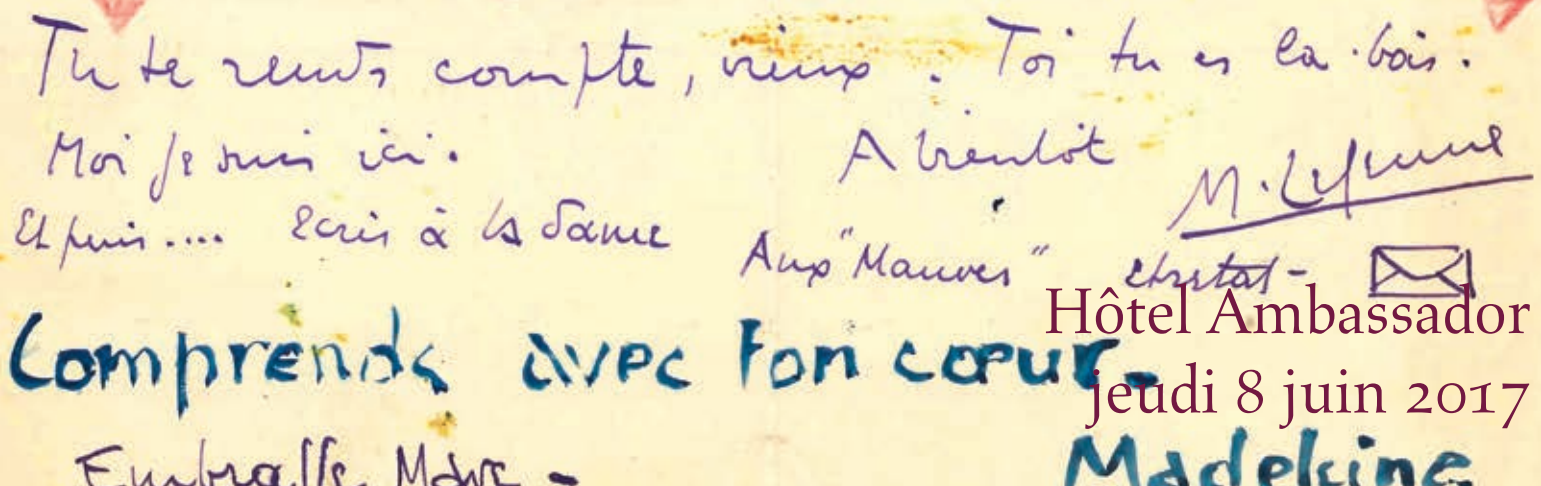 Tu te rends compte, vieux. Toi tu es la-bas.
Moi je suis ici. A bientôt
M. Lejeune
Et puis.... Ecris à la dame Aux "Mauves" etretat -
Hôtel Ambassador
Comprends avec ton cœur-
jeudi 8 juin 2017
Embrasse Marc - Madeleine